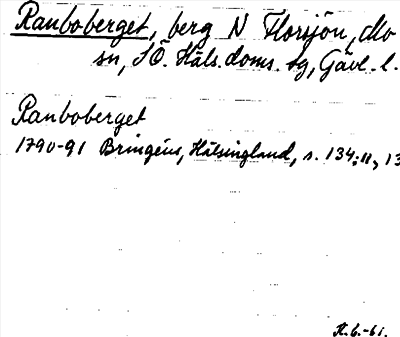 Ranboberget, berg N Florsjön, Mo
sn, SÖ. Häls. doms. sg, Gävl. l.
Ranboberget
1790-91 Bringéus, Hälsingland, s. 134:11, 13
H.G.-61.